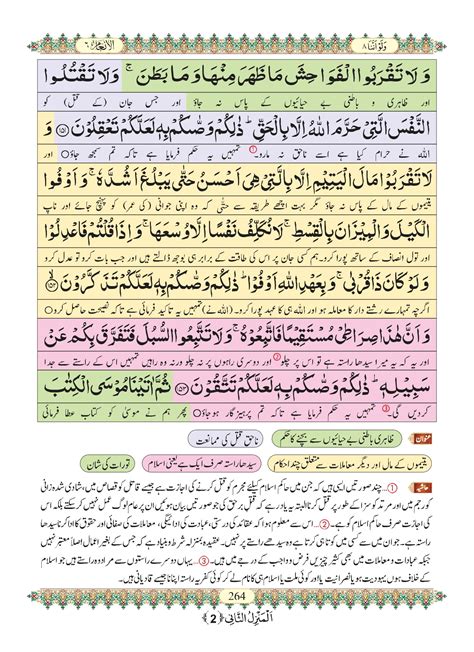 وَلَوْ اَنَّنَا ٨ اَلْاَنْعَام ٦
وَ لَا تَقْرَبُوا الْفَوَاحِشَ مَا ظَهَرَ مِنْهَا وَ مَا بَطَنَ ۚ وَ لَا تَقْتُلُوا
اور ظاہری و باطنی بے حیائیوں کے پاس نہ جاؤ اور جس جان (کے قتل) کو
النَّفْسَ الَّتِیْ حَرَّمَ اللّٰهُ اِلَّا بِالْحَقِّ ؕ ذٰلِكُمْ وَصّٰىكُمْ بِهٖ لَعَلَّكُمْ تَعْقِلُوْنَ ﴿۱۵۱﴾ وَ
اللہ نے حرام کیا ہے اسے ناحق نہ مارو۔ ① تمہیں یہ حکم فرمایا ہے تاکہ تم سمجھ جاؤ ○ اور
لَا تَقْرَبُوْا مَالَ الْیَتِیْمِ اِلَّا بِالَّتِیْ هِیَ اَحْسَنُ حَتّٰى یَبْلُغَ اَشُدَّهٗ ۚ وَ اَوْفُوا
یتیموں کے مال کے پاس نہ جاؤ مگر بہت اچھے طریقہ سے حتّٰی کہ وہ اپنی جوانی (کی عمر) کو پہنچ جائے اور ناپ
الْكَیْلَ وَ الْمِیْزَانَ بِالْقِسْطِ ۚ لَا نُكَلِّفُ نَفْسًا اِلَّا وُسْعَهَا ۚ وَ اِذَا قُلْتُمْ فَاعْدِلُوْا
اور تول انصاف کے ساتھ پورا کرو۔ ہم کسی جان پر اس کی طاقت کے برابر ہی بوجھ ڈالتے ہیں اور جب بات کرو تو عدل کرو
وَ لَوْ كَانَ ذَا قُرْبٰى ۚ وَ بِعَهْدِ اللّٰهِ اَوْفُوْا ؕ ذٰلِكُمْ وَصّٰىكُمْ بِهٖ لَعَلَّكُمْ تَذَكَّرُوْنَ ﴿۱۵۲﴾
اگرچہ تمہارے رشتے دار کا معاملہ ہو اور اللہ ہی کا عہد پورا کرو۔ (اللہ نے) تمہیں یہ تاکید فرمائی ہے تاکہ تم نصیحت حاصل کرو ○
وَ اَنَّ هٰذَا صِرَاطِیْ مُسْتَقِیْمًا فَاتَّبِعُوْهُ ۚ وَ لَا تَتَّبِعُوا السُّبُلَ فَتَفَرَّقَ بِكُمْ عَنْ
اور یہ کہ یہ میرا سیدھا راستہ ہے تو اس پر چلو ② اور دوسری راہوں پر نہ چلو ورنہ وہ راہیں تمہیں اس کے راستے سے جدا
سَبِیْلِهٖ ؕ ذٰلِكُمْ وَصّٰىكُمْ بِهٖ لَعَلَّكُمْ تَتَّقُوْنَ ﴿۱۵۳﴾ ثُمَّ اٰتَیْنَا مُوْسَى الْكِتٰبَ
کر دیں گی۔ ③ تمہیں یہ حکم فرمایا ہے تاکہ تم پرہیز گار ہوجاؤ ○ پھر ہم نے موسیٰ کو کتاب عطا فرمائی
عنوان ظاہری باطنی بے حیائیوں سے بچنے کا حکم ناحق قتل کی ممانعت
یتیموں کے مال اور دیگر معاملات سے متعلق چند احکام سیدھا راستہ صرف ایک ہے یعنی اسلام تورات کی شان
حاشیہ ①…چند صورتیں ایسی ہیں کہ جن میں حاکمِ اسلام کیلئے مجرم کو قتل کرنے کی اجازت ہے جیسے قاتل کو قصاص میں، شادی شدہ زانی
کو رجم میں اور مرتد کو سزا کے طور پر قتل کرنا البتہ یہ یاد رہے کہ قتلِ برحق کی جو صورتیں بیان ہوئیں ان پر عام لوگ عمل نہیں کر سکتے بلکہ اس
کی اجازت صرف حاکمِ اسلام کو ہے۔ ②…اس سے معلوم ہوا کہ عقائد کی درستی، عبادات کی ادائیگی، معاملات کی صفائی اور حقوق کا ادا کرنا سیدھا
راستہ ہے۔ جو ان میں سے کسی میں کوتاہی کرتا ہے وہ سیدھے راستے پر نہیں۔ عقیدہ بمنزلہ شرط و بنیاد ہے کہ جس کے بغیر اعمال اصلاً معتبر نہیں
جبکہ عبادات و معاملات میں بھی کثیر چیزیں فرض و واجب کے درجے میں ہیں۔ ③…یہاں دوسرے راستوں سے مراد وہ راستے ہیں جو اسلام
کے خلاف ہوں یہودیت ہو یا نصرانیت یا اور کوئی ملت یا اسلام ہی کا نام لے کر کوئی کفریہ راستہ اپنانا جیسے قادیانی ہیں۔
264
اَلْمَنْزِلُ الثَّانِیْ ﴿2﴾